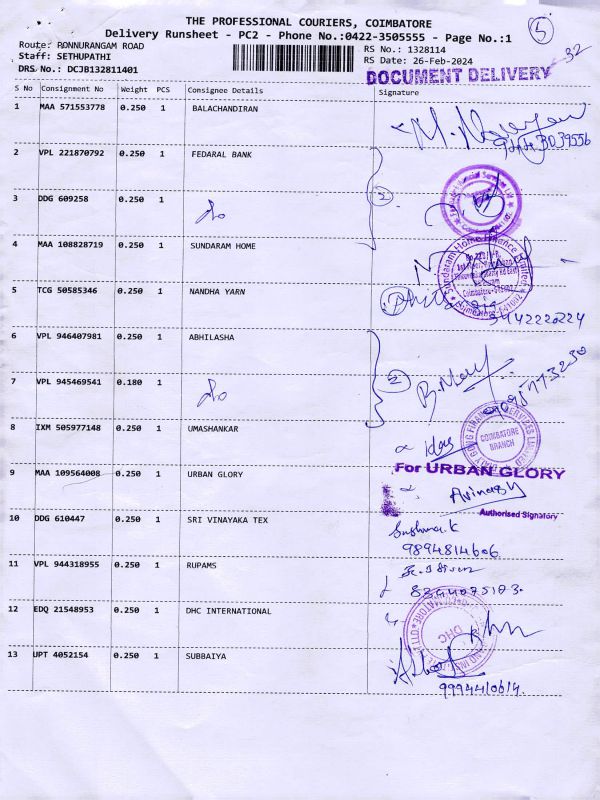 THE PROFESSIONAL COURIERS, COIMBATORE
5
Delivery Runsheet - PC2 - Phone No.:0422-3505555 - Page No.:1
Route: PONNURANGAM ROAD
RS No.: 1328114
Staff: SETHUPATHI
RS Date: 26-Feb-2024
DRS No.: DCJB132811401
DOCUMENT DELIVERY
32
S No Consignment No Weight PCS Consignee Details Signature
1 MAA 571553778 0.250 1 BALACHANDIRAN
2 VPL 221870792 0.250 1 FEDARAL BANK
3 DDG 609258 0.250 1 do
2
4 MAA 108828719 0.250 1 SUNDARAM HOME
Sundaram Home Finance Limited
5 TCG 50585346 0.250 1 NANDHA YARN
6 VPL 946407981 0.250 1 ABHILASHA
7 VPL 945469541 0.180 1 do
2
8 IXM 505977148 0.250 1 UMASHANKAR
COIMBATORE
BRANCH
9 MAA 109564008 0.250 1 URBAN GLORY
For URBAN GLORY
Avinash
Authorised Signatory
10 DDG 610447 0.250 1 SRI VINAYAKA TEX
Sushma.K
9894814606
11 VPL 944318955 0.250 1 RUPAMS
12 EDQ 21548953 0.250 1 DHC INTERNATIONAL
DHC
13 UPT 4052154 0.250 1 SUBBAIYA